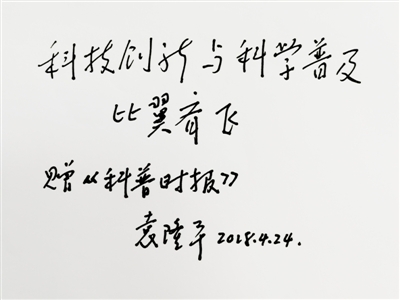 科技创新与科学普及
比翼齐飞
赠《科普时报》
袁隆平 2018.4.24.